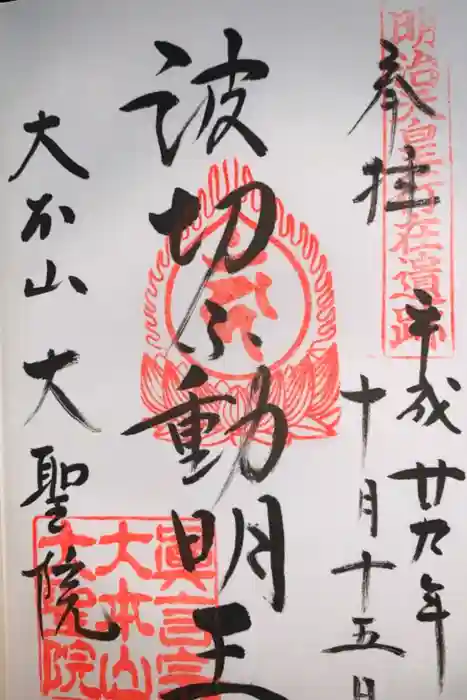 奉拝
明治天皇行在遺跡
平成廿九年
十月十五日
波切不動明王
大本山大聖院
眞言宗
大本山
大聖院